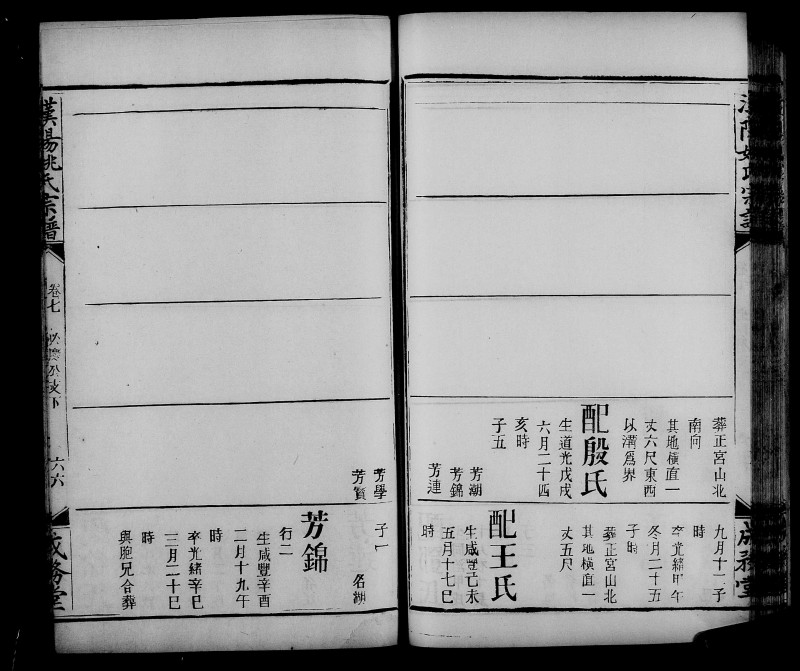 葬正宮山北
南向
其地橫直一
丈六尺東西
以溝爲界
配殷氏
生道光戊戌
六月二十四
亥時
子五
芳潮
芳錦
芳連
九月十二子
時
卒光緒甲午
冬月二十五
子時
葬正宮山北
其地橫直一
丈五尺
配王氏
生咸豐己未
五月十七巳
時
成務堂
芳學
芳賢
子一
名湖
芳錦
行二
生咸豐辛酉
二月十九午
時
卒光緒辛巳
三月二十巳
時
與胞兄合葬
漢陽姚氏宗譜
卷七
六六
成務堂